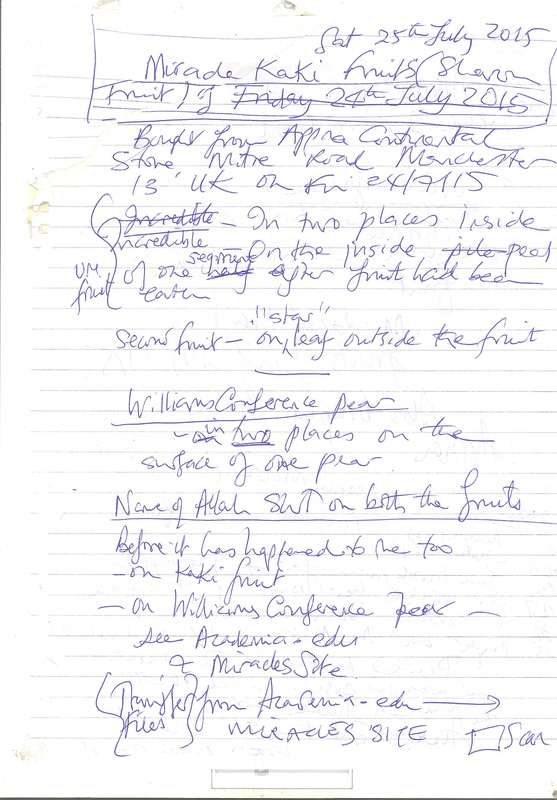 Sat 25th July 2015
Miracle Kaki Fruits (Sharon
Fruit) of Friday 24th July 2015
Bought from Appna Continental
Store Mitre Road Manchester
13 UK on Fri 24/7/15
Incredible - In two places inside
Incredible
segment On the inside peel
of one half after fruit had been
one
fruit eaten
"star"
second fruit - on leaf outside the fruit
Williams Conference pear
- on in two places on the
surface of one pear
Name of Allah SWT on both the fruits
Before it has happened to me too
- on Kaki fruit
- on Williams Conference pear -
see Academia-edu
& Miracles Site
(Transfer from Academia-edu →
files MIRACLES SITE Scan